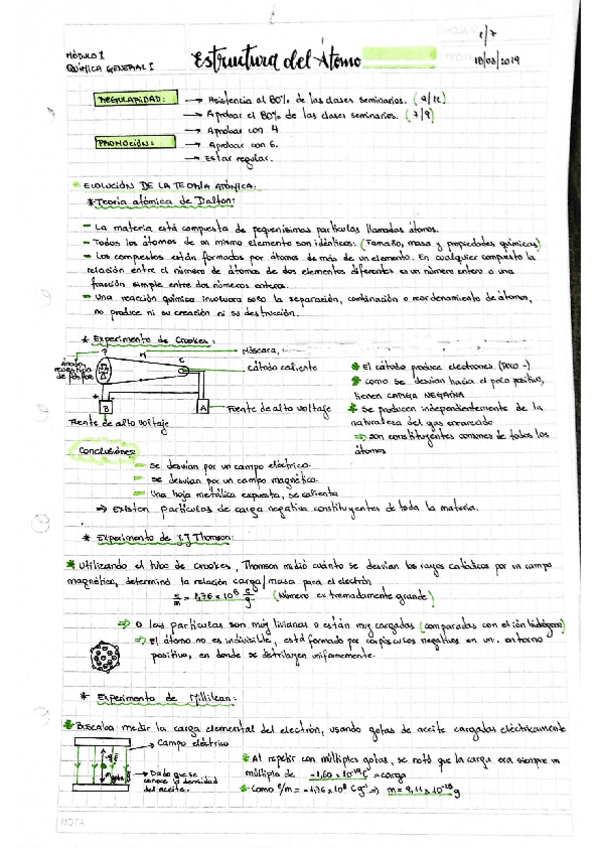 1/7
MÓDULO 1
QUÍMICA GENERAL I
Estructura del Átomo
18/03/2019
REGULARIDAD: → Asistencia al 80% de las clases seminarios. (9/12)
→ Aprobar el 80% de las clases seminarios. (7/9)
→ Aprobar con 4
PROMOCIÓN: → Aprobar con 6.
→ Estar regular.
EVOLUCIÓN DE LA TEORÍA ATÓMICA:
* Teoría atómica de Dalton:
- La materia está compuesta de pequeñísimas partículas llamadas átomos.
- Todos los átomos de un mismo elemento son idénticos. (Tamaño, masa y propiedades químicas)
- Los compuestos están formados por átomos de más de un elemento. En cualquier compuesto la
relación entre el número de átomos de dos elementos diferentes es un número entero o una
fracción simple entre dos números enteros.
- Una reacción química involucra solo la separación, combinación o reordenamiento de átomos,
no produce ni su creación ni su destrucción.
* Experimento de Crookes:
Máscara,
Ánodo
de fósforo
M
C
cátodo caliente
B
A
Fuente de alto voltaje
Fuente de alto voltaje
* El cátodo produce electrones (Polo -)
* como se desvian hacia el polo positivo,
tienen CARGA NEGATIVA
* Se producen independientemente de la
naturaleza del gas enrarecido
⇒ son constituyentes comunes de todos los
átomos
Conclusiones:
- se desvían por un campo eléctrico.
- se desvían por un campo magnético.
- Una hoja metálica expuesta, se calienta
⇒ Existen partículas de carga negativa constituyentes de toda la materia.
* Experimento de J.J Thomson:
* Utilizando el tubo de Crookes, Thomson midió cuánto se desvían los rayos catódicos por un campo
magnético, determinó la relación carga/masa para el electrón
e/m = -1,76 x 10⁸ C/g (Número extremadamente grande)
⇒ O las partículas son muy livianas o están muy cargadas (comparadas con el ión hidrógeno)
⇒ El átomo no es indivisible, está formado por corpúsculos negativos en un entorno
positivo, en donde se distribuyen uniformemente.
* Experimento de Millikan:
* Buscaba medir la carga elemental del electrón, usando gotas de aceite cargadas eléctricamente
→ Campo eléctrico
→ Dado que se
conoce la densidad
del aceite.
* Al repetir con múltiples gotas, se notó que la carga era siempre un
múltiplo de -1,60 x 10⁻¹⁹ C = carga
* Como e/m = -1,76 x 10⁸ C g⁻¹ ⇒ m = 9,11 x 10⁻²⁸ g
NOTA